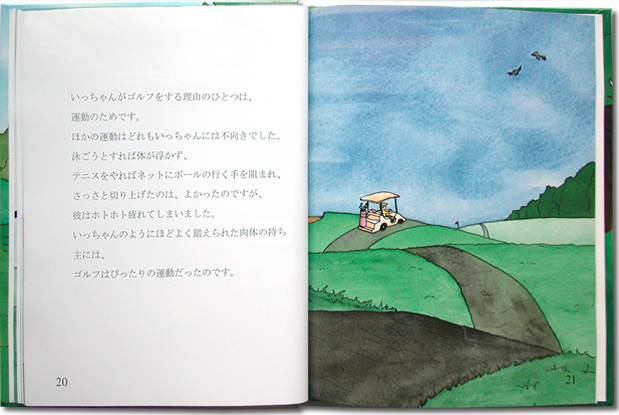 いっちゃんがゴルフをする理由のひとつは、
運動のためです。
ほかの運動はどれもいっちゃんには不向きでした。
泳ごうとすれば体が浮かず、
テニスをやればネットにボールの行く手を阻まれ、
さっさと切り上げたのは、よかったのですが、
彼はホトホト疲れてしまいました。
いっちゃんのようにほどよく鍛えられた肉体の持ち
主には、
ゴルフはぴったりの運動だったのです。
20
21